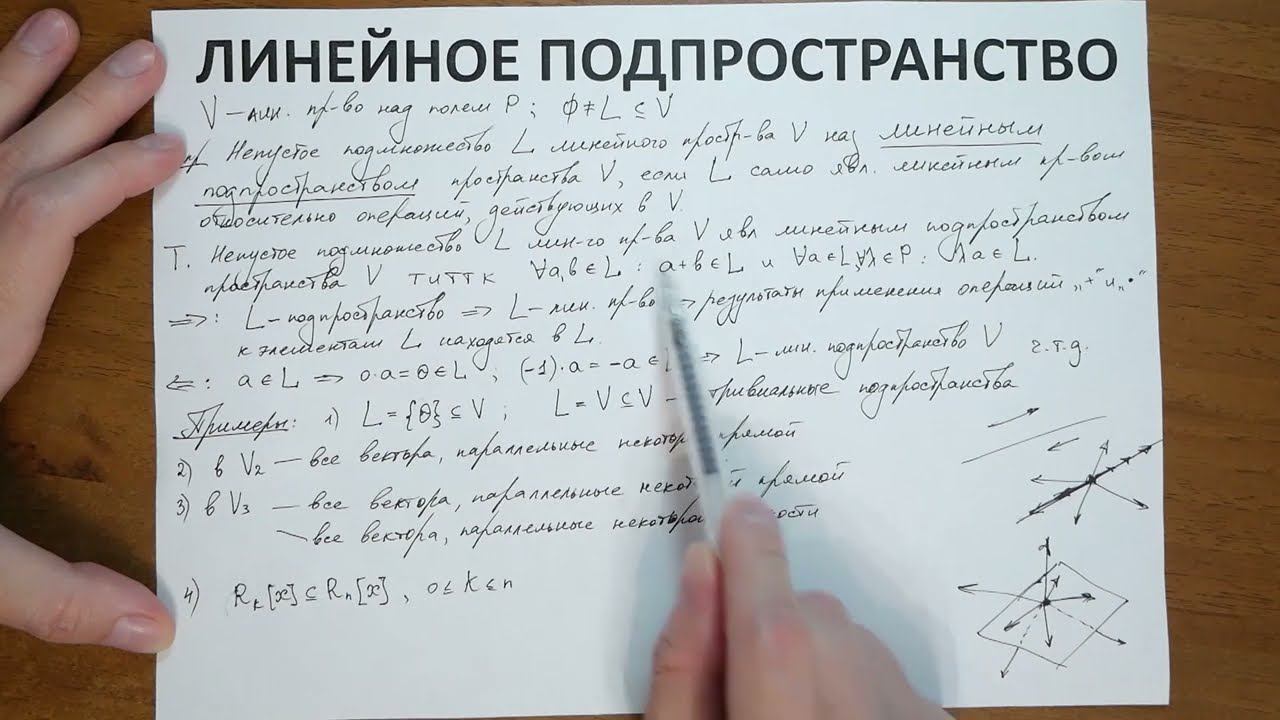 ЛИНЕЙНОЕ ПОДПРОСТРАНСТВО
V – лин. пр-во над полем P ; ϕ ≠ L ⊆ V
Непустое подмножество L линейного простр-ва V наз линейным
подпространством пространства V, если L само явл. линейным пр-вом
относительно операций, действующих в V.
Т. Непустое подмножество L лин-го пр-ва V явл линейным подпространством
пространства V титтк ∀a,b∈L : a+b∈L и ∀a∈L,∀λ∈P : λa∈L.
⇒: L – подпространство ⇒ L – лин. пр-во ⇒ результаты применения операций „+“ и „•“
к элементам L находятся в L.
⇐: a∈L ⇒ 0·a=θ∈L ; (-1)·a=-a∈ ⇒ L – лин. подпространство V ч.т.д.
Примеры: 1) L={θ}⊆V ; L=V⊆V – тривиальные подпространства
2) в V₂ — все вектора, параллельные прямой
3) в V₃ — все вектора, параллельные прямой
— все вектора, параллельные
4) Rₖ[x]⊆Rₙ[x] , 0≤k≤n
α